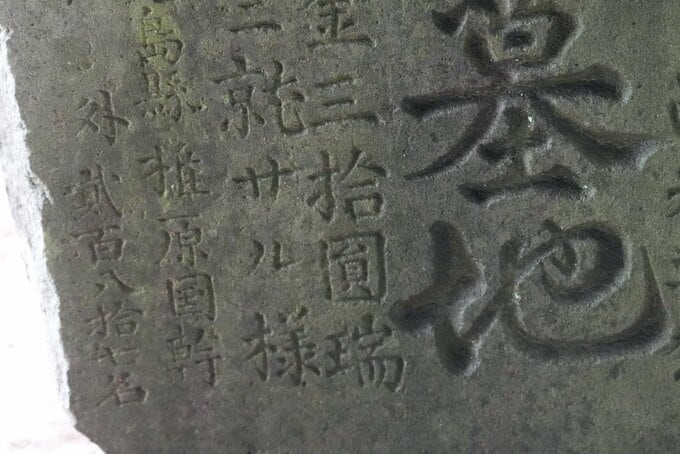 墓地
金三拾圓瑞
ニ就サル様
島縣 椎原国幹
外 貳百八拾七名